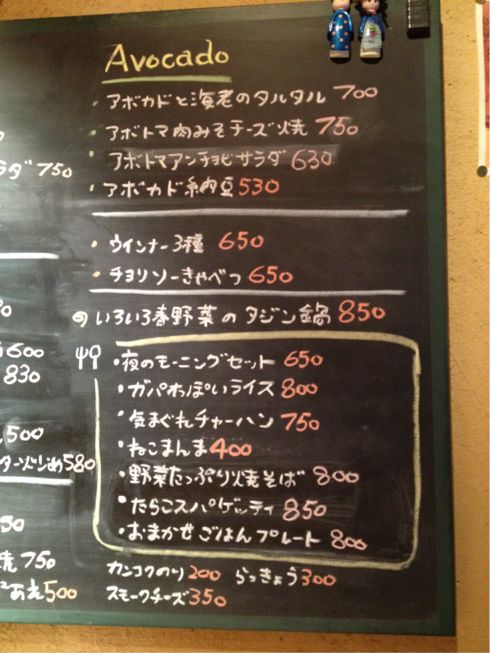 Avocado
・アボカドと海老のタルタル 700
・アボトマ肉みそチーズ焼 750
・アボトマアンチョビサラダ 630
・アボカド納豆 530
・ウインナー3種 650
・チョリソーきゃべつ 650
いろいろ春野菜のタジン鍋 850
・夜のモーニングセット 650
・ガパオっぽいライス 800
・気まぐれチャーハン 750
・ねこまんま 400
・野菜たっぷり焼そば 800
・たらこスパゲッティ 850
・おまかせごはんプレート 800
カンコクのり 200 らっきょう 300
スモークチーズ 350
ラダ 750
600
830
500
580
50
焼 750
あえ 500